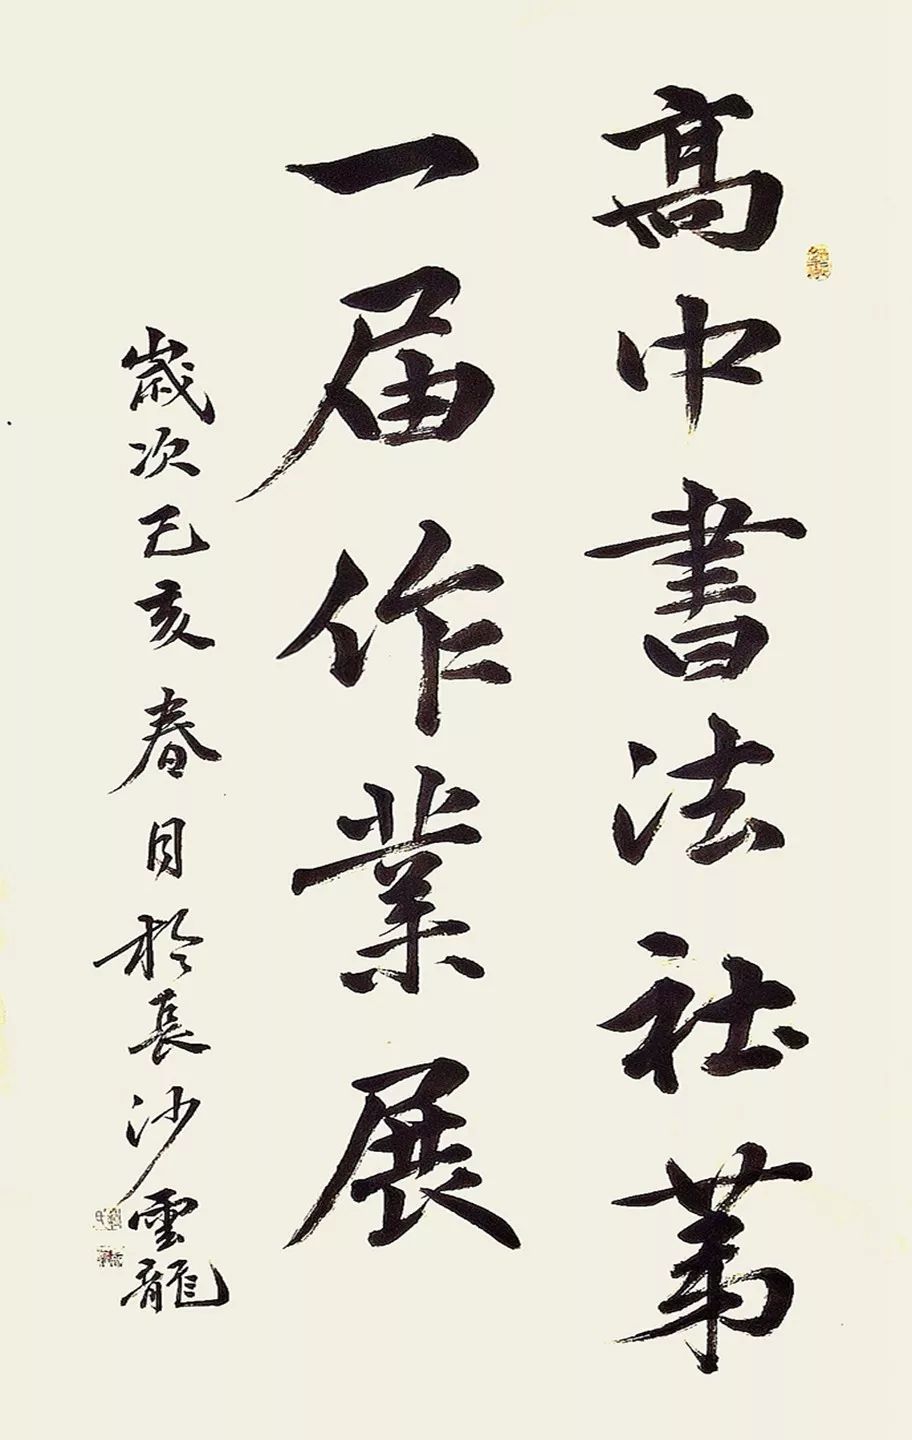 高中書法社苐
一届作業展
歲次己亥春月於長沙雲龍